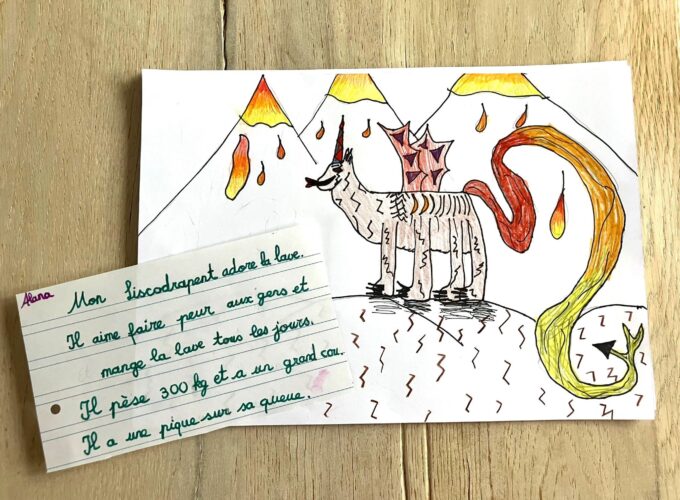 Alana
Mon Liscodrapent adore la lave.
Il aime faire peur aux gens et
mange la lave tous les jours.
Il pèse 300 kg et a un grand cou.
Il a une pique sur sa queue.